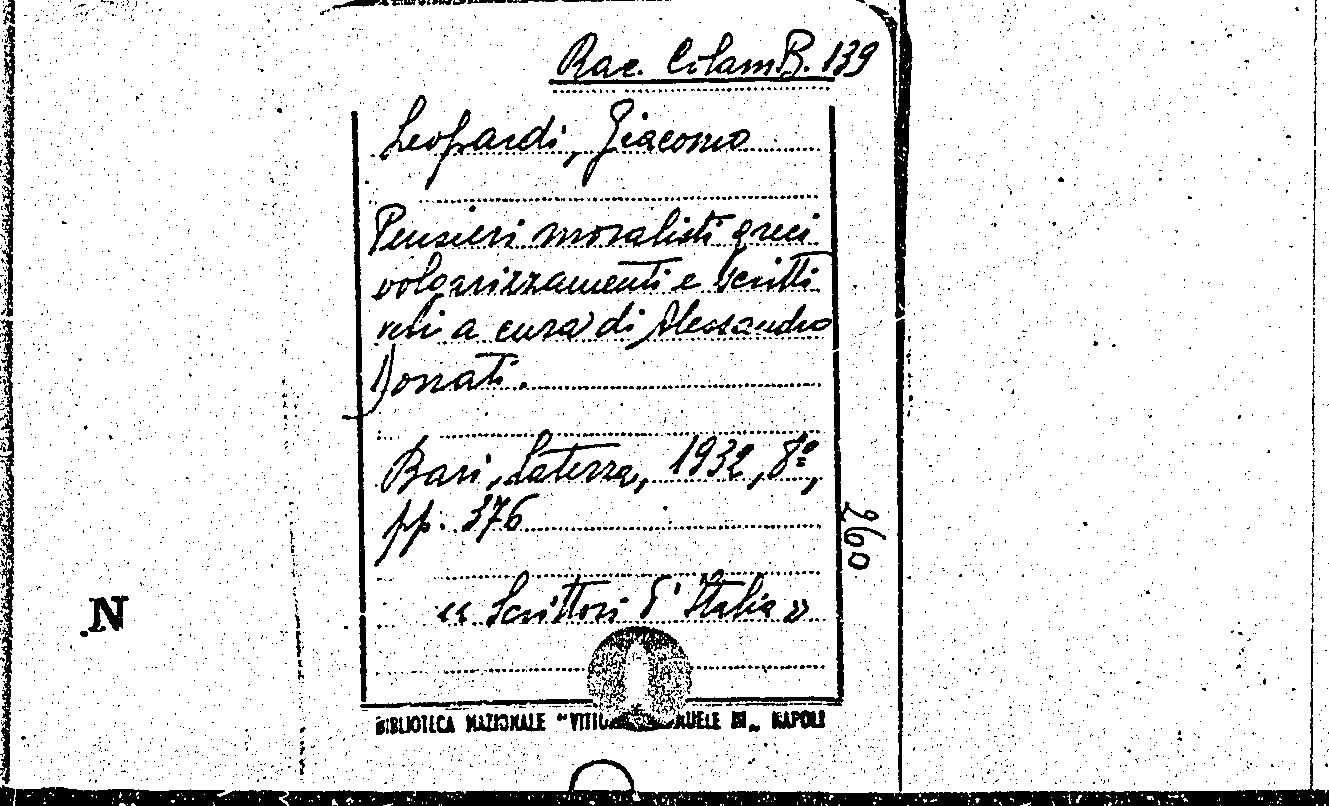 Rac. Colam B. 139
Leopardi, Giacomo
Pensieri moralisti greci
volgarizzamenti e scritti
vari a cura di Alessandro
Donati.
Bari, Laterza, 1932, 8º,
pp. 376
260
« Scrittori d'Italia »
N
BIBLIOTECA NAZIONALE "VITTO UELE III„ NAPOLI